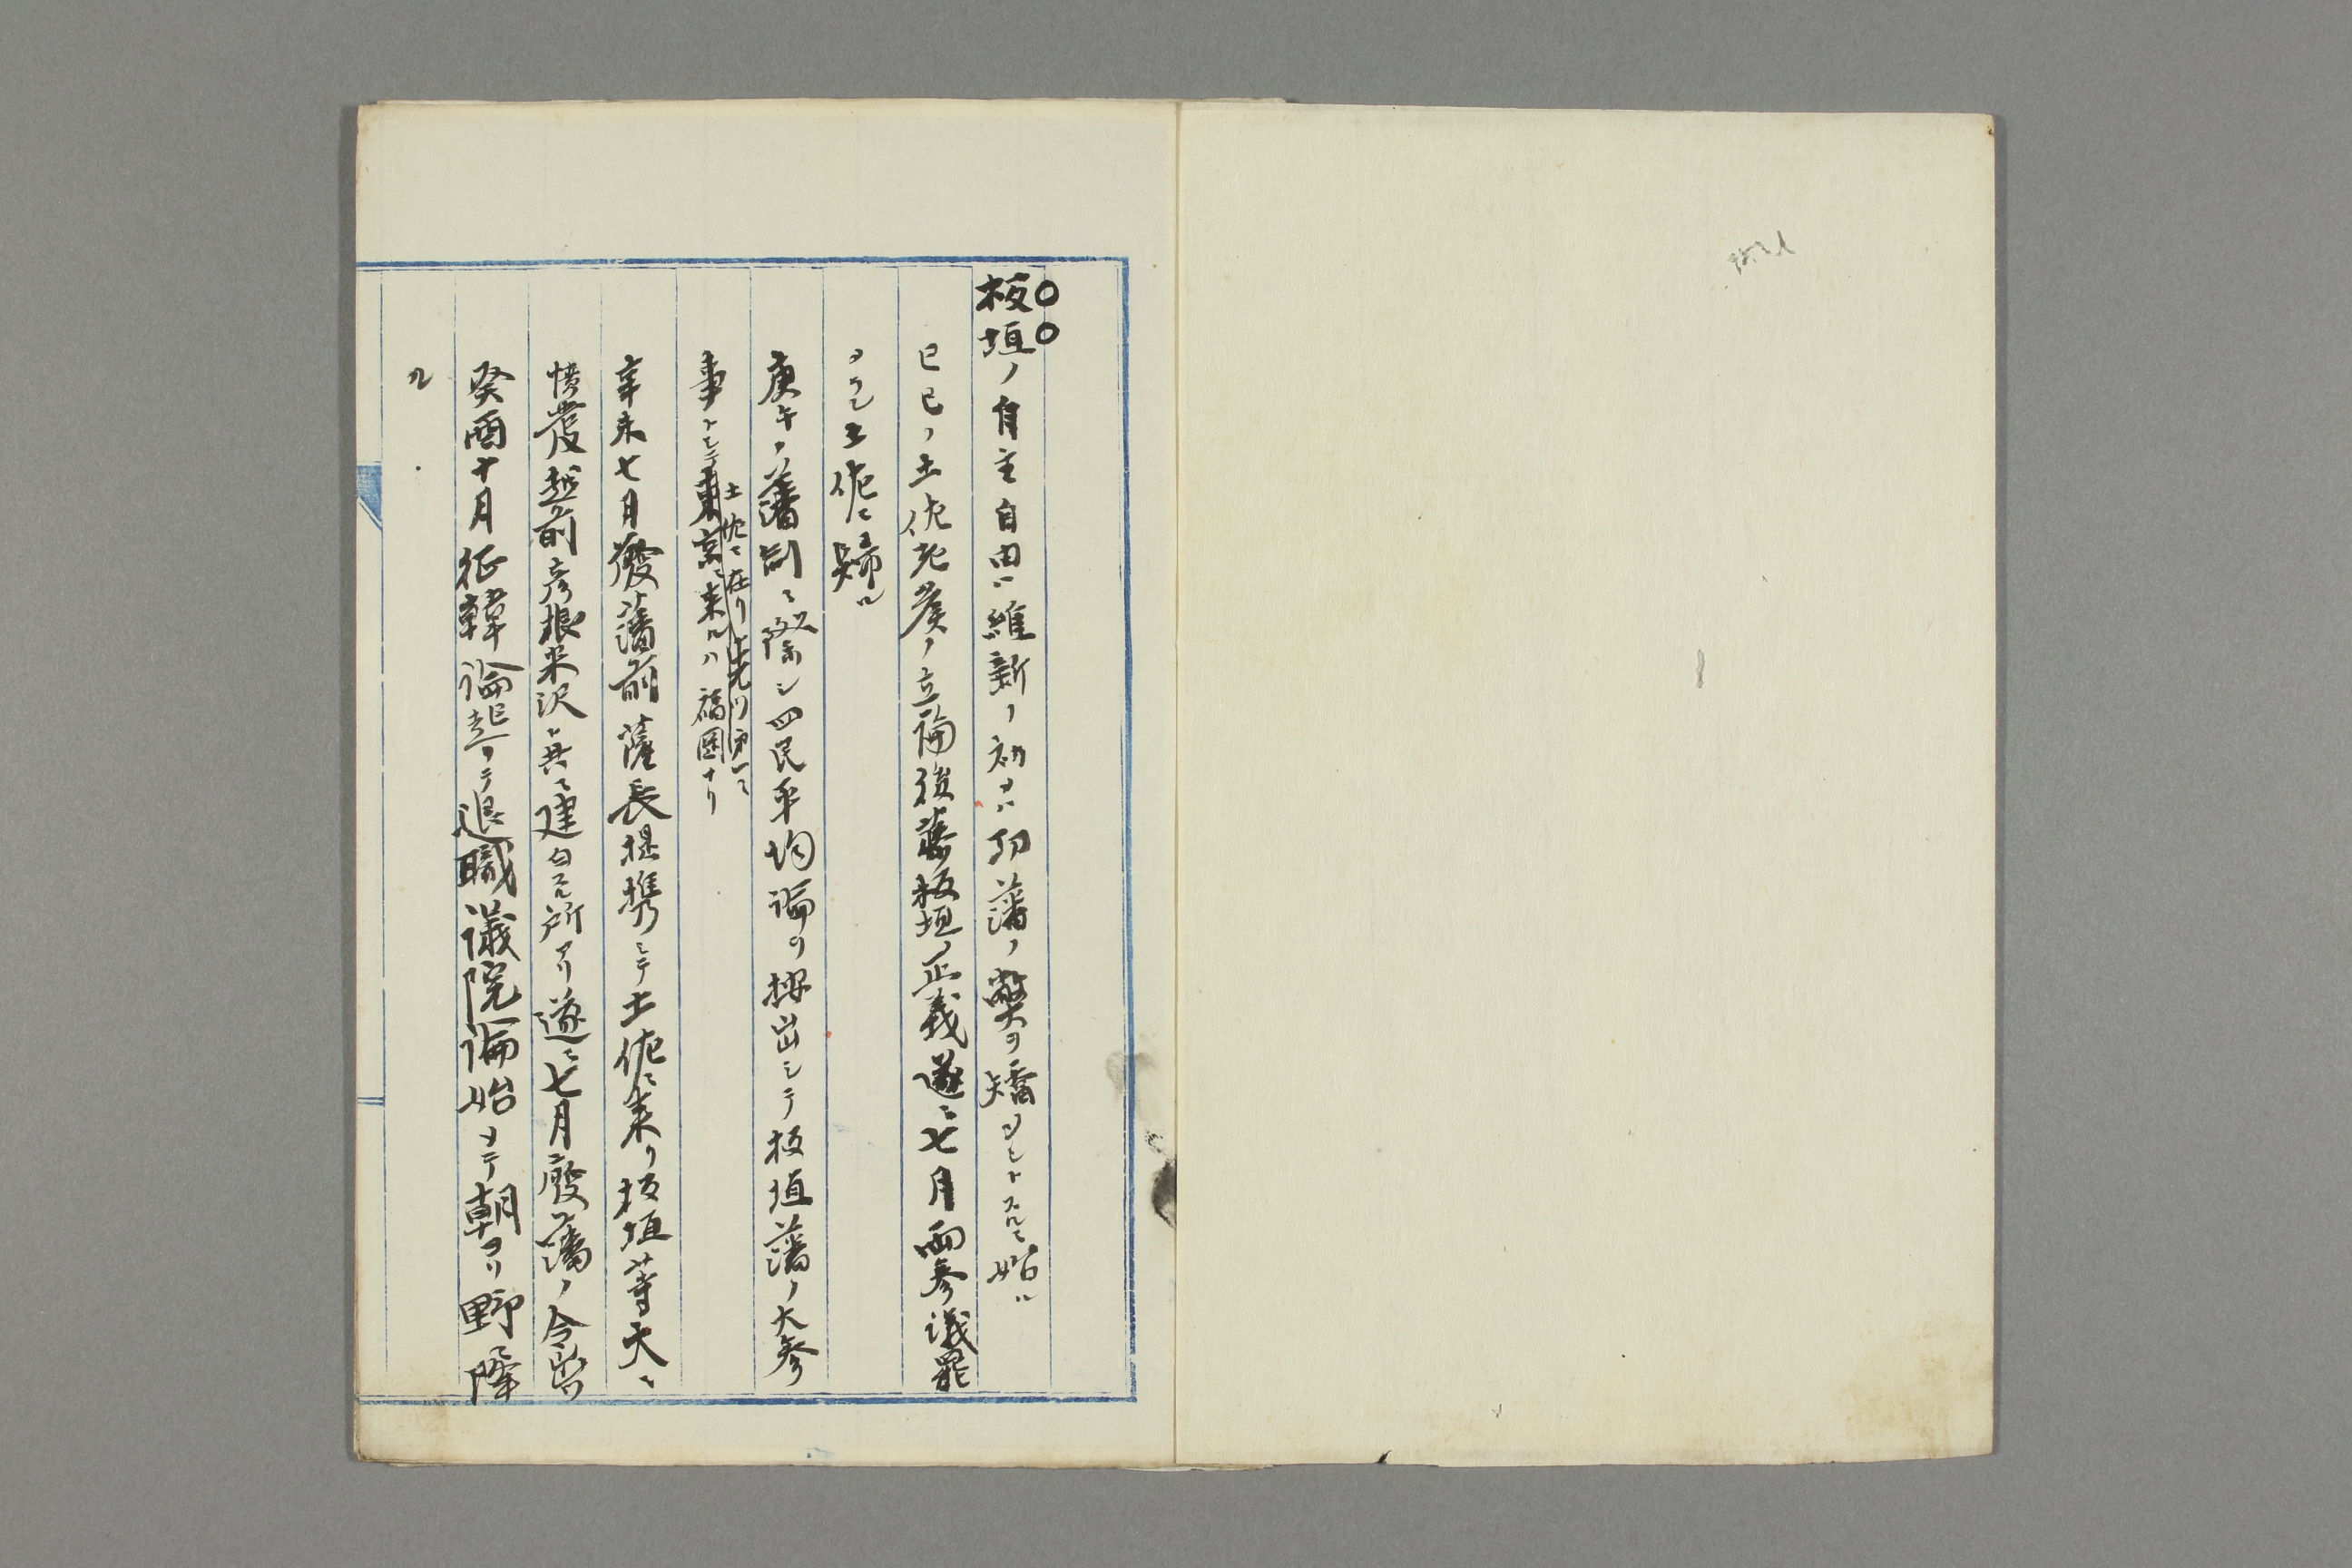 板垣ノ自主自由ハ維新ノ初ヨリ列藩ノ弊ヲ矯メントスルニ始ル
己巳ノ土佐老侯ノ立論後藤板垣ノ正義遂ニ七月両参議罷
メラレ土佐ニ帰ル
庶午ノ藩制ニ際シ四民平均論ヲ探出シテ板垣藩ノ大参
事トシテ東京ニ来ルハ福岡ナリ
土佐ニ在リ
辛未七月廃藩前薩長提携シテ土佐ニ来リ板垣等大ニ
憤発越前彦根米沢ト共ニ建白スル所アリ遂ニ七月廃藩ノ令出ツ
癸酉十月征韓論起リテ退職議院論始メテ朝ヨリ野ニ降
ル